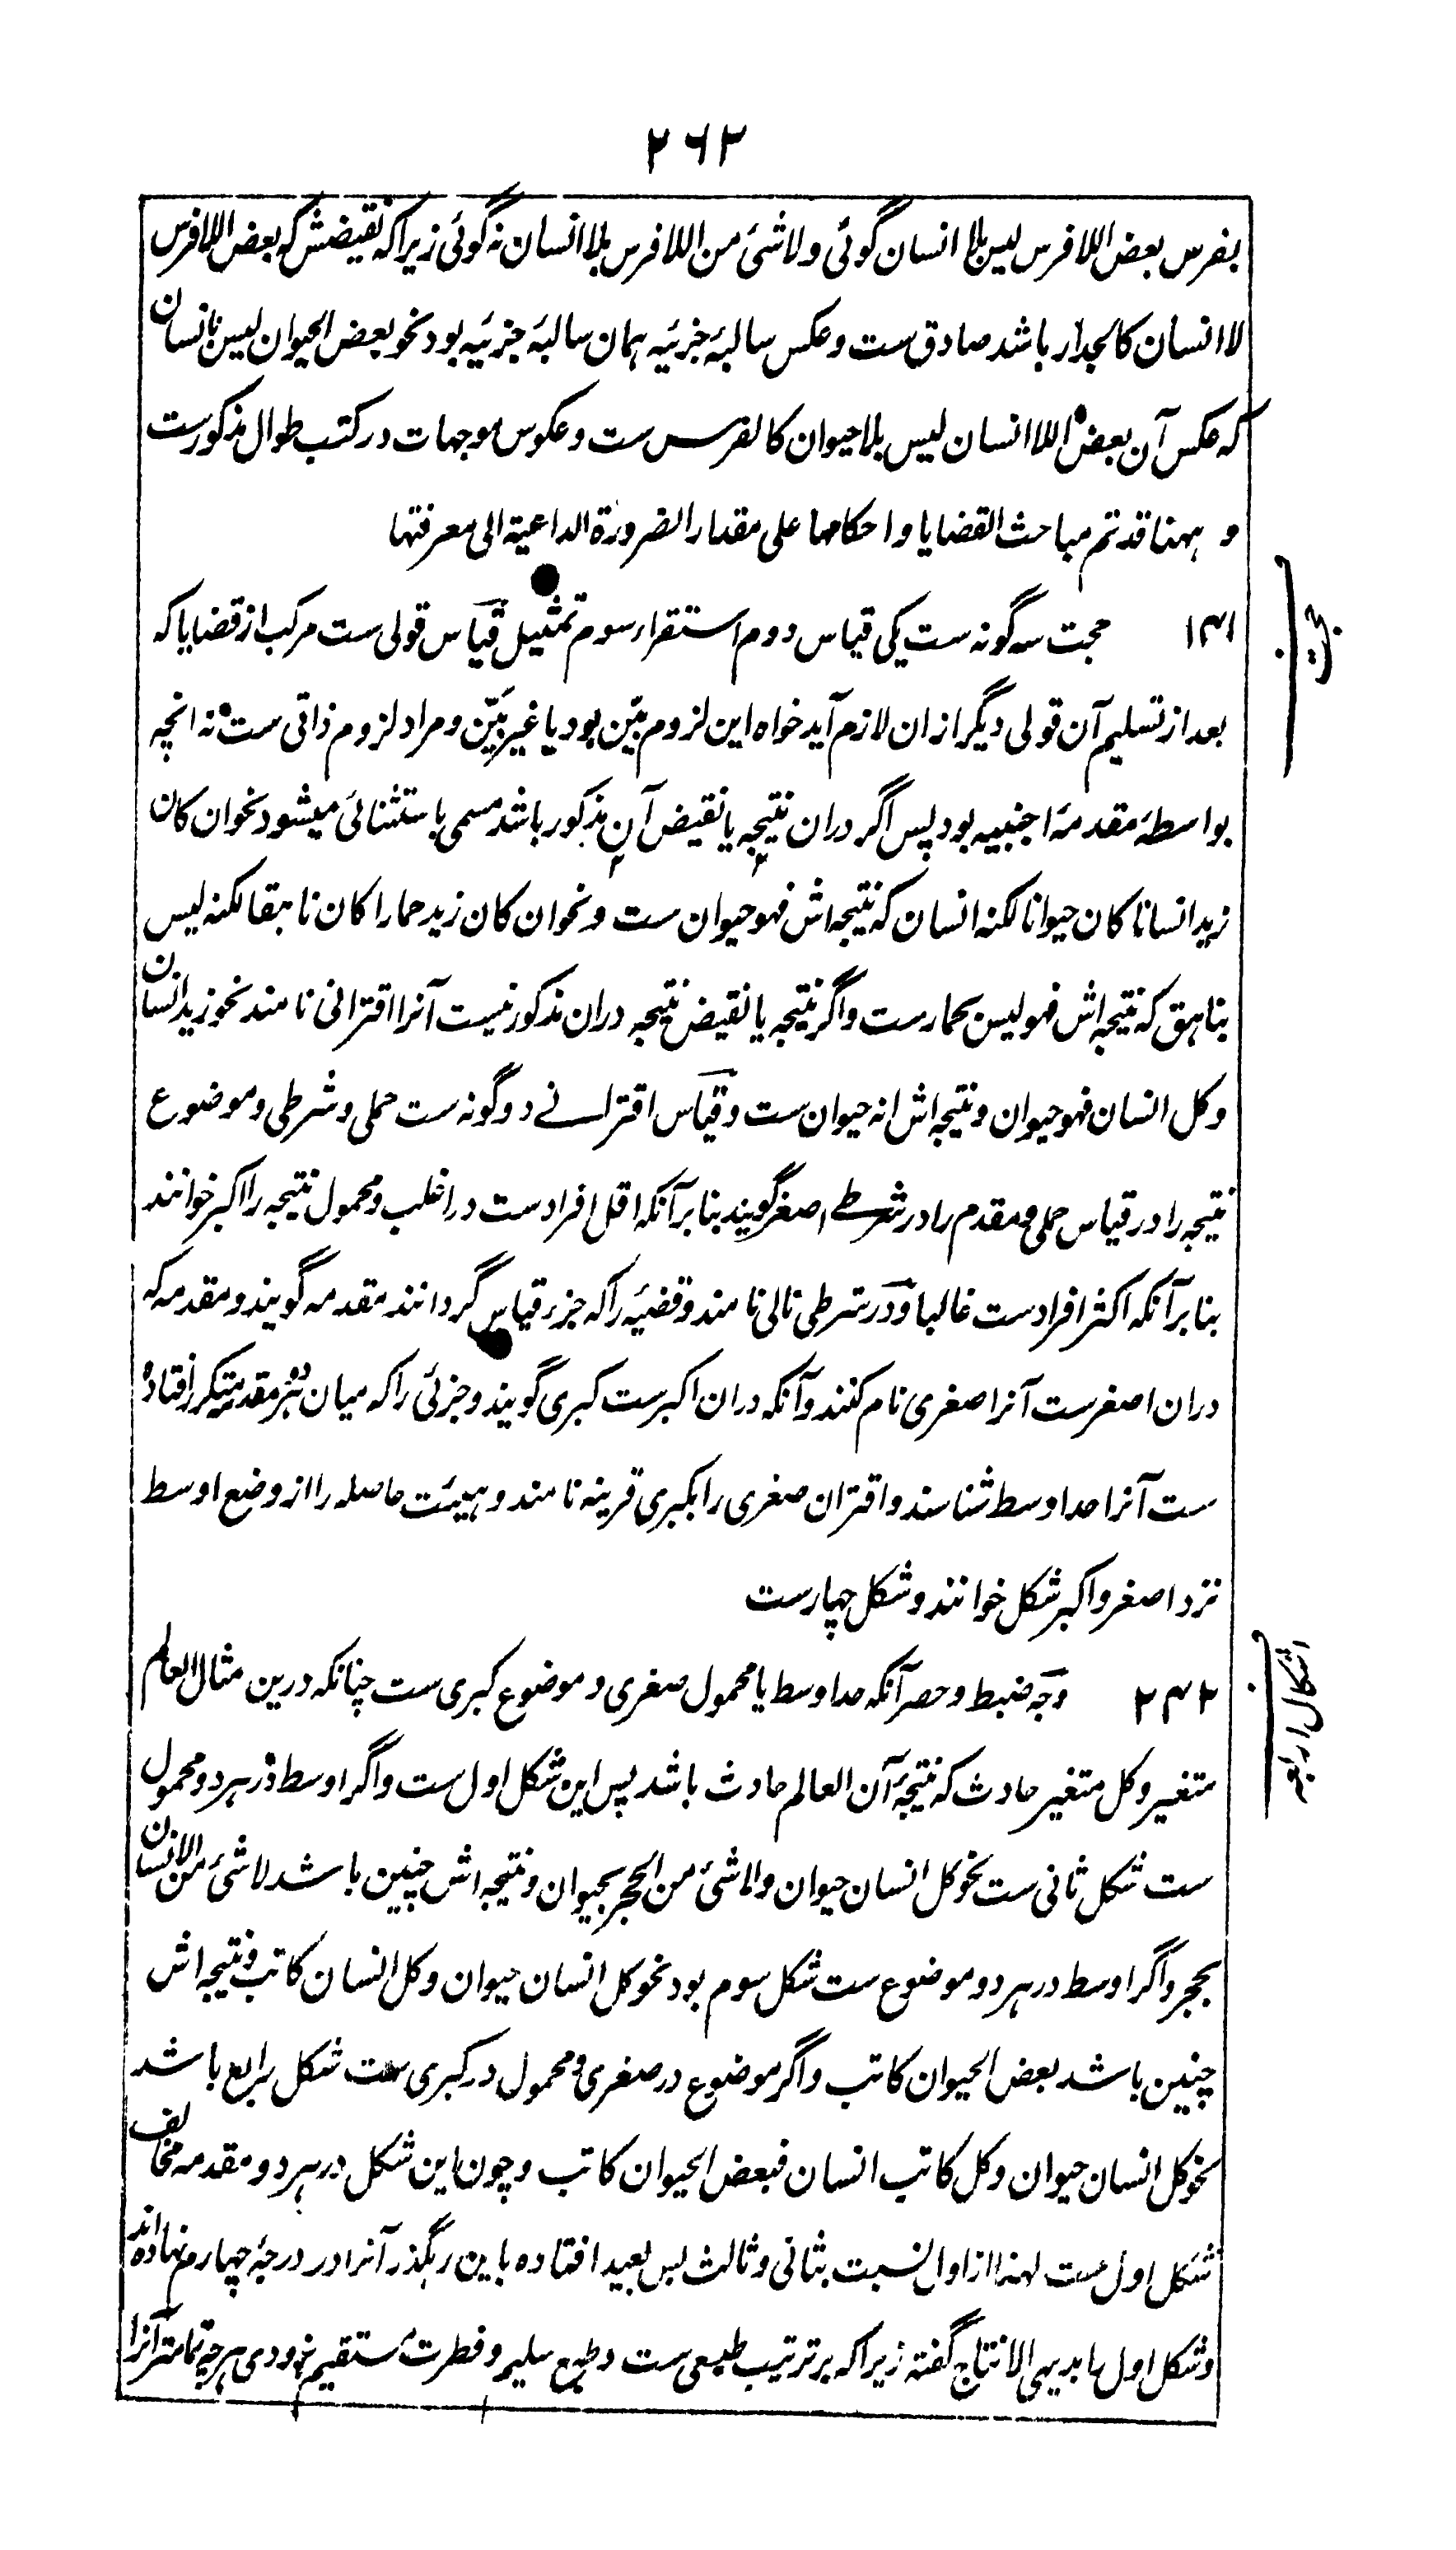 ۲۶۲
بفرس بعض اللافرس لیس بلا انسان گوئی و لاشئ من اللافرس بلا انسان نه گوئی زیراکه نقیضش که بعض اللافرس
لا انسان کالجدار باشد صادق ست و عکس سالبۀ جزئیه همان سالبۀ جزئیه بود نحو بعض الحیوان لیس بانسان
که عکس آن بعض اللاانسان لیس بلا حیوان کالفرس ست و عکوس موجهات در کتب طوال مذکورست
و ههنا قد تم مباحث القضایا و احکامها علی مقدار الضرورة الداعیة الی معرفتها
حجت
۱۴۱ حجت سه گونه ست یکی قیاس دوم استقراء سوم تمثیل قیاس قولی ست مرکب از قضایا که
بعد از تسلیم آن قولی دیگر ازان لازم آید خواه این لزوم بیّن بود یا غیر بیّن و مراد لزوم ذاتی ست نه انچه
بواسطۀ مقدمۀ اجنبیه بود پس اگر دران نتیجه یا نقیض آن مذکور باشد مسمی باستثنائی میشود نحو ان کان
زید انسانا کان حیوانا لکنه انسان که نتیجه اش فهو حیوان ست و نحو ان کان زید حمارا کان ناهقا لکنه لیس
بناهق که نتیجه اش فهو لیس بحمارست و اگر نتیجه یا نقیض نتیجه دران مذکور نیست آنرا اقترانی نامند نحو زید انسان
و کل انسان فهو حیوان و نتیجه اش انه حیوان ست و قیاس اقترانے دو گونه ست حملی و شرطی و موضوع
نتیجه را در قیاس حملی و مقدم را در شرطے اصغر گویند بنابر آنکه اقل افرادست در اغلب و محمول نتیجه را اکبر خوانند
بنابر آنکه اکثر افرادست غالبا و در شرطی تالی نامند و قضیه را که جزء قیاس گردانند مقدمه گویند و مقدمه که
دران اصغرست آنرا صغری نام کنند و آنکه دران اکبرست کبری گویند و جزئی را که میان هر دو مقدمه متکرر افتاده
ست آنرا حد اوسط شناسند و اقتران صغری را بکبری قرینه نامند و هیئت حاصله را از وضع اوسط
نزد اصغر و اکبر شکل خوانند و شکل چهارست
اشکال اربعه
۲۴۲ وجه ضبط و حصر آنکه حد اوسط یا محمول صغری و موضوع کبری ست چنانکه درین مثال العالم
متغیر و کل متغیر حادث که نتیجۀ آن العالم حادث باشد پس این شکل اول ست و اگر اوسط در هر دو محمول
ست شکل ثانی ست نحو کل انسان حیوان و لاشئ من الحجر بحیوان و نتیجه اش چنین باشد لاشئ من الانسان
بحجر و اگر اوسط در هر دو موضوع ست شکل سوم بود نحو کل انسان حیوان و کل انسان کاتب و نتیجه اش
چنین باشد بعض الحیوان کاتب و اگر موضوع در صغری و محمول در کبری ست شکل رابع باشد
نحو کل انسان حیوان و کل کاتب انسان فبعض الحیوان کاتب و چون این شکل در هر دو مقدمه مخالف
شکل اول ست لهذا از اول نسبت بثانی و ثالث بس بعید افتاده باین رهگذر آنرا در درجۀ چهارم نهاده اند
و شکل اول را بدیهی الانتاج گفته زیراکه بر ترتیب طبیعی ست و طبع سلیم و فطرت مستقیم